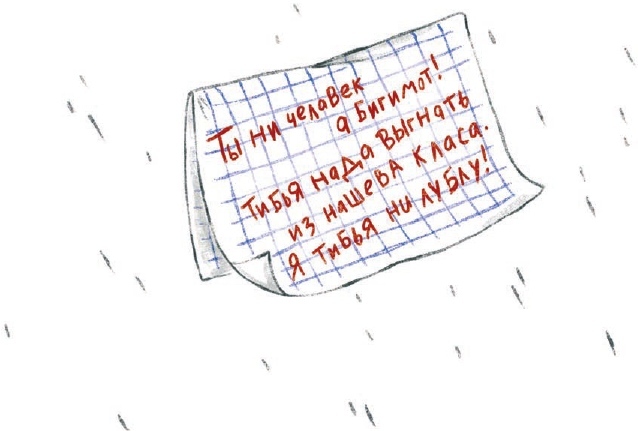 Ты ни челавек
а бигимот!
Тибья нада выгнать
из нашева класа.
Я тибья ни лублу!